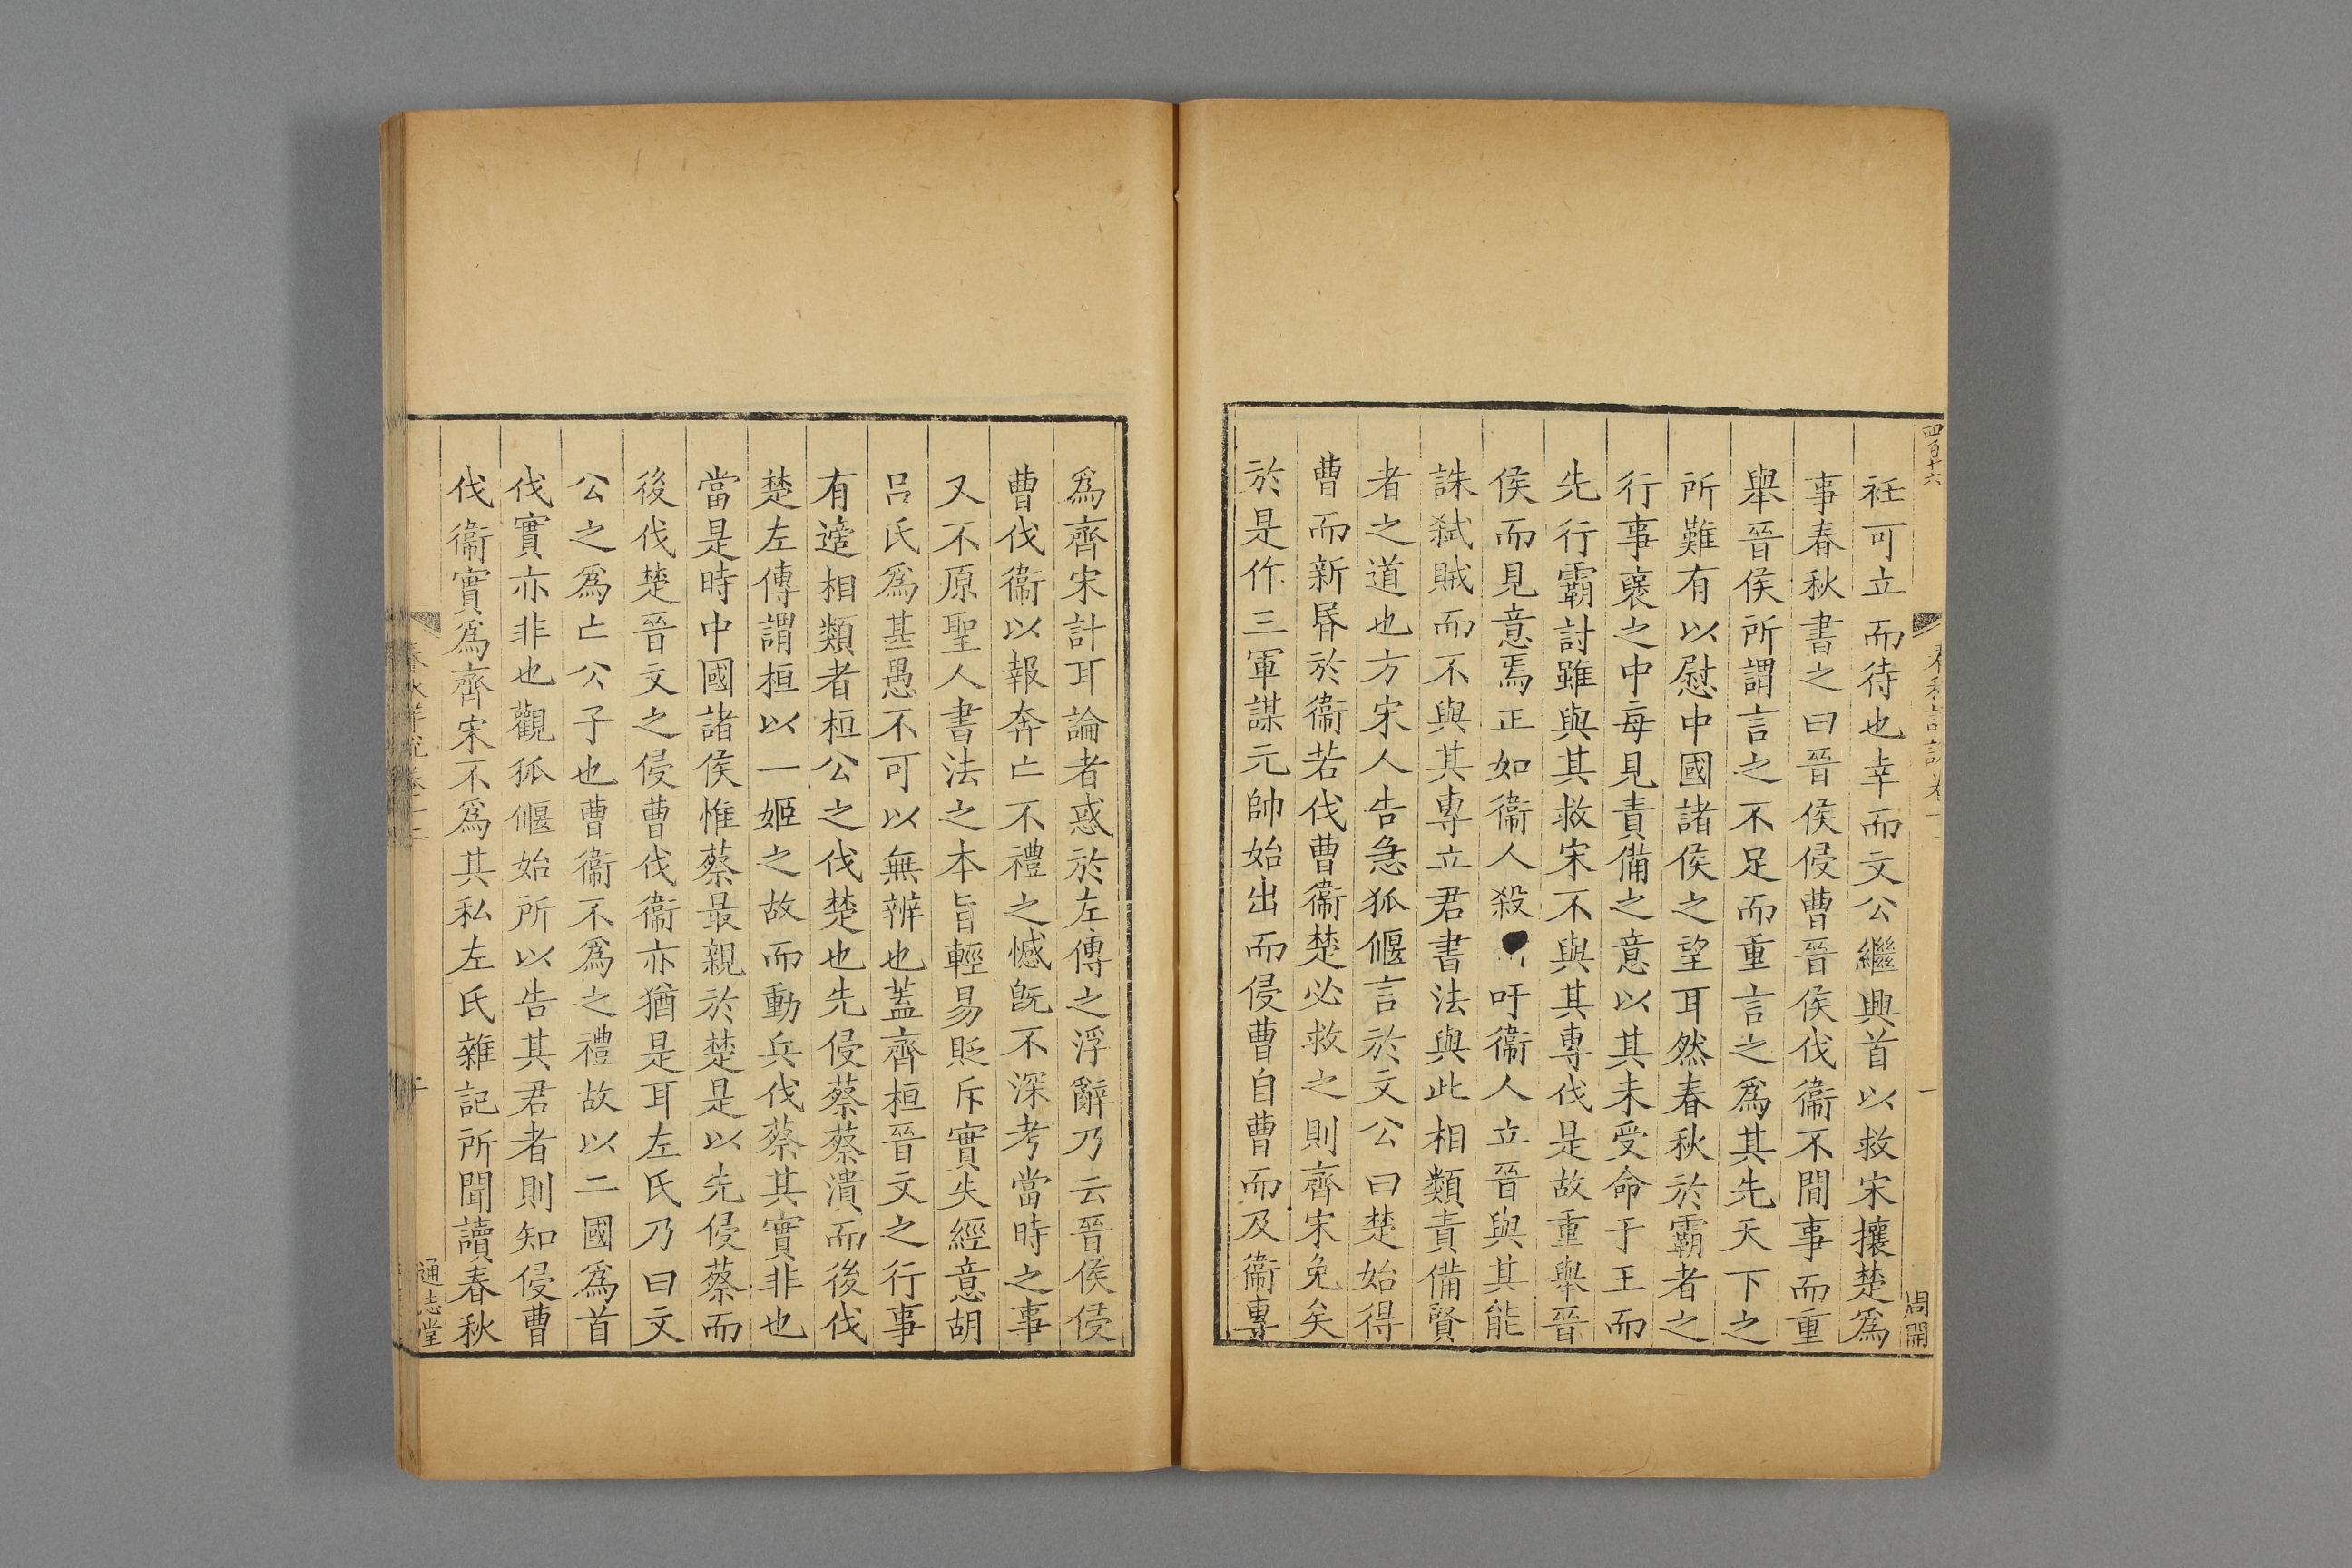 四百十六
周開
衽可立而待也幸而文公繼興首以救宋攘楚爲
事春秋書之曰晉侯侵曹晉侯伐衞不間事而重
舉晉侯所謂言之不足而重言之爲其先天下之
所難有以慰中國諸侯之望耳然春秋於霸者之
行事襃之中每見責備之意以其未受命于王而
先行霸討雖與其救宋不與其專伐是故重舉晉
侯而見意焉正如衞人殺吁衞人立晉與其能
誅弒賊而不與其專立君書法與此相類責備賢
者之道也方宋人告急狐偃言於文公曰楚始得
曹而新昏於衞若伐曹衞楚必救之則齊宋免矣
於是作三軍謀元帥始出而侵曹自曹而及衞專
爲齊宋計耳論者惑於左傳之浮辭乃云晉侯侵
曹伐衞以報奔亡不禮之憾旣不深考當時之事
又不原聖人書法之本旨輕易貶斥實失經意胡
呂氏爲甚愚不可以無辨也蓋齊桓晉文之行事
有適相類者桓公之伐楚也先侵蔡蔡潰而後伐
楚左傳謂桓以一姬之故而動兵伐蔡其實非也
當是時中國諸侯惟蔡最親於楚是以先侵蔡而
後伐楚晉文之侵曹伐衞亦猶是耳左氏乃曰文
公之爲亡公子也曹衞不爲之禮故以二國爲首
伐實亦非也觀狐偃始所以告其君者則知侵曹
伐衞實爲齊宋不爲其私左氏雜記所聞讀春秋
通志堂